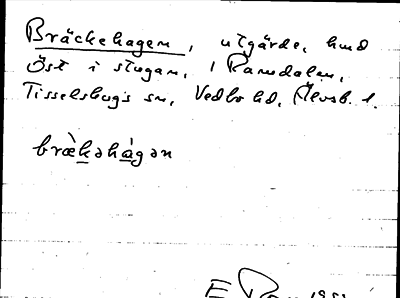 Bräckehagen, utgärde, hmd
Öst i stugan, i Ramdalen,
Tisselskogs sn, Vedbo hd, Älvsb. l.
bræ̀kəhágən